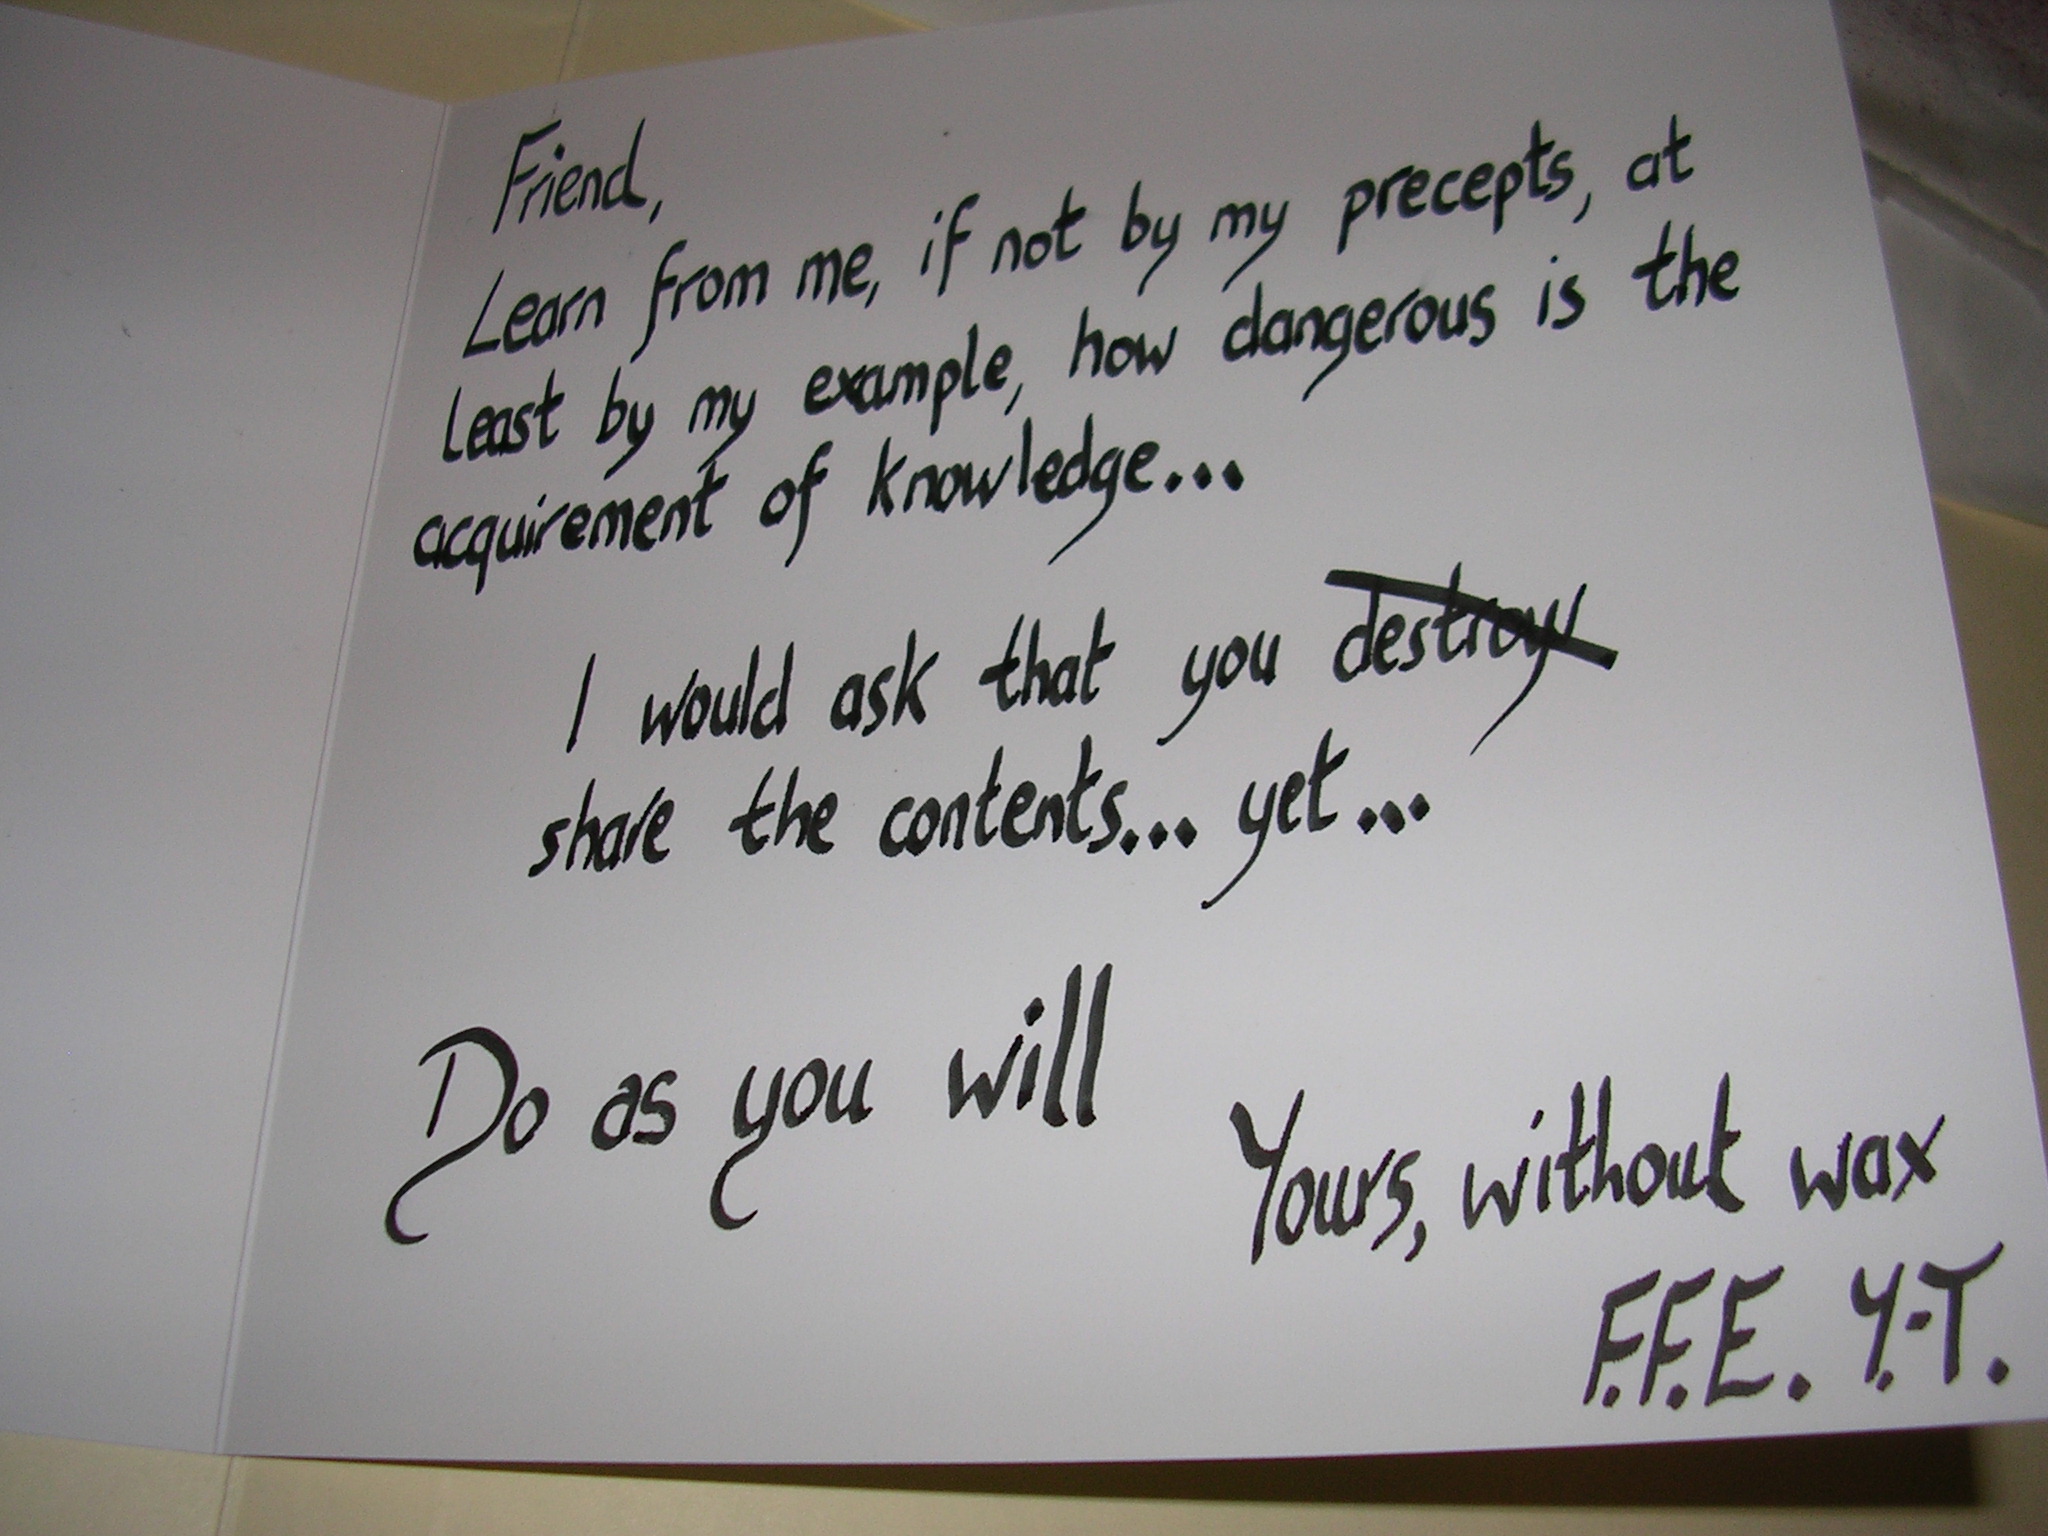 Friend,
Learn from me, if not by my precepts, at
least by my example, how dangerous is the
acquirement of knowledge...
I would ask that you destroy
share the contents... yet...
Do as you will
Yours, without wax
F.F.E. Y.-T.